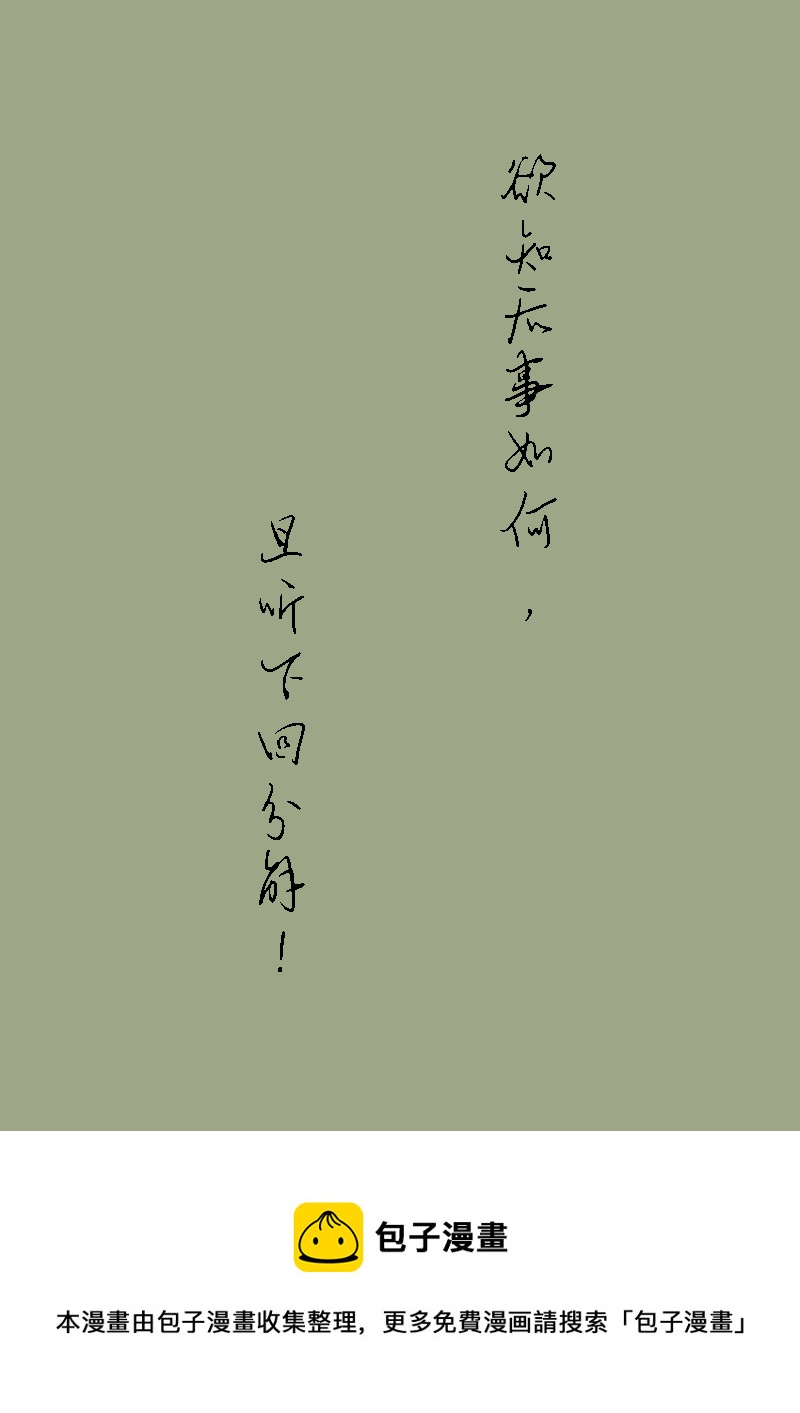 欲知后事如何，
且听下回分解！
包子漫畫
本漫畫由包子漫畫收集整理，更多免費漫画請搜索「包子漫畫」